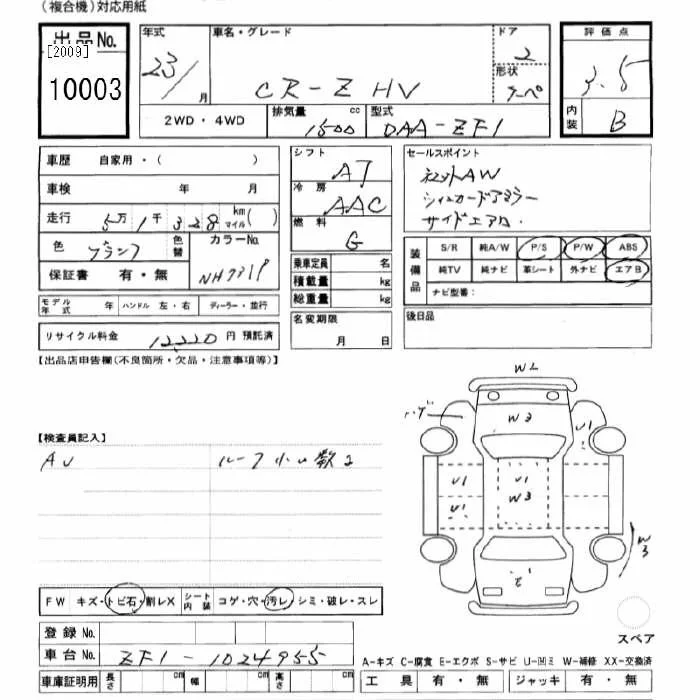 (複合機)対応用紙
出品No.
[2009]
10003
年式 車名・グレード ドア 評価点
23/ 月 CR-Z HV 2 3.5
形状
クーペ
2WD・4WD 排気量 cc 型式 内装
1500 DAA-ZF1 B
車歴 自家用・( )
車検 年 月
走行 5万1千328 km マイル ( )
色 ブラック 色替 カラーNo.
保証書 有・無
モデル年式 年 ハンドル 左・右 ディーラー・並行
リサイクル料金 12220円 預託済
シフト AT
冷房 AAC
燃料 G
乗車定員 名
積載量 kg
総重量 kg
名変期限
月 日
セールスポイント
AW
サイドエアB.
装備品 S/R 純A/W P/S P/W ABS
純TV 純ナビ 革シート 外ナビ エアB
ナビ型番:
後日品
【出品店申告欄(不良箇所・欠品・注意事項等)】
【検査員記入】
AU ルーフ小凹数コ
W2
W3
U1
U1 U1
U1 W3
W3
E
FW キズ・トビ石・割レX シート内装 コゲ・穴・汚レ・シミ・破レ・スレ
登録No.
車台No. ZF1-1024955
車庫証明用 長さ cm 幅 cm 高さ cm
スペア
A-キズ C-腐食 E-エクボ S-サビ U-凹ミ W-補修 XX-交換済
工具 有・無 ジャッキ 有・無